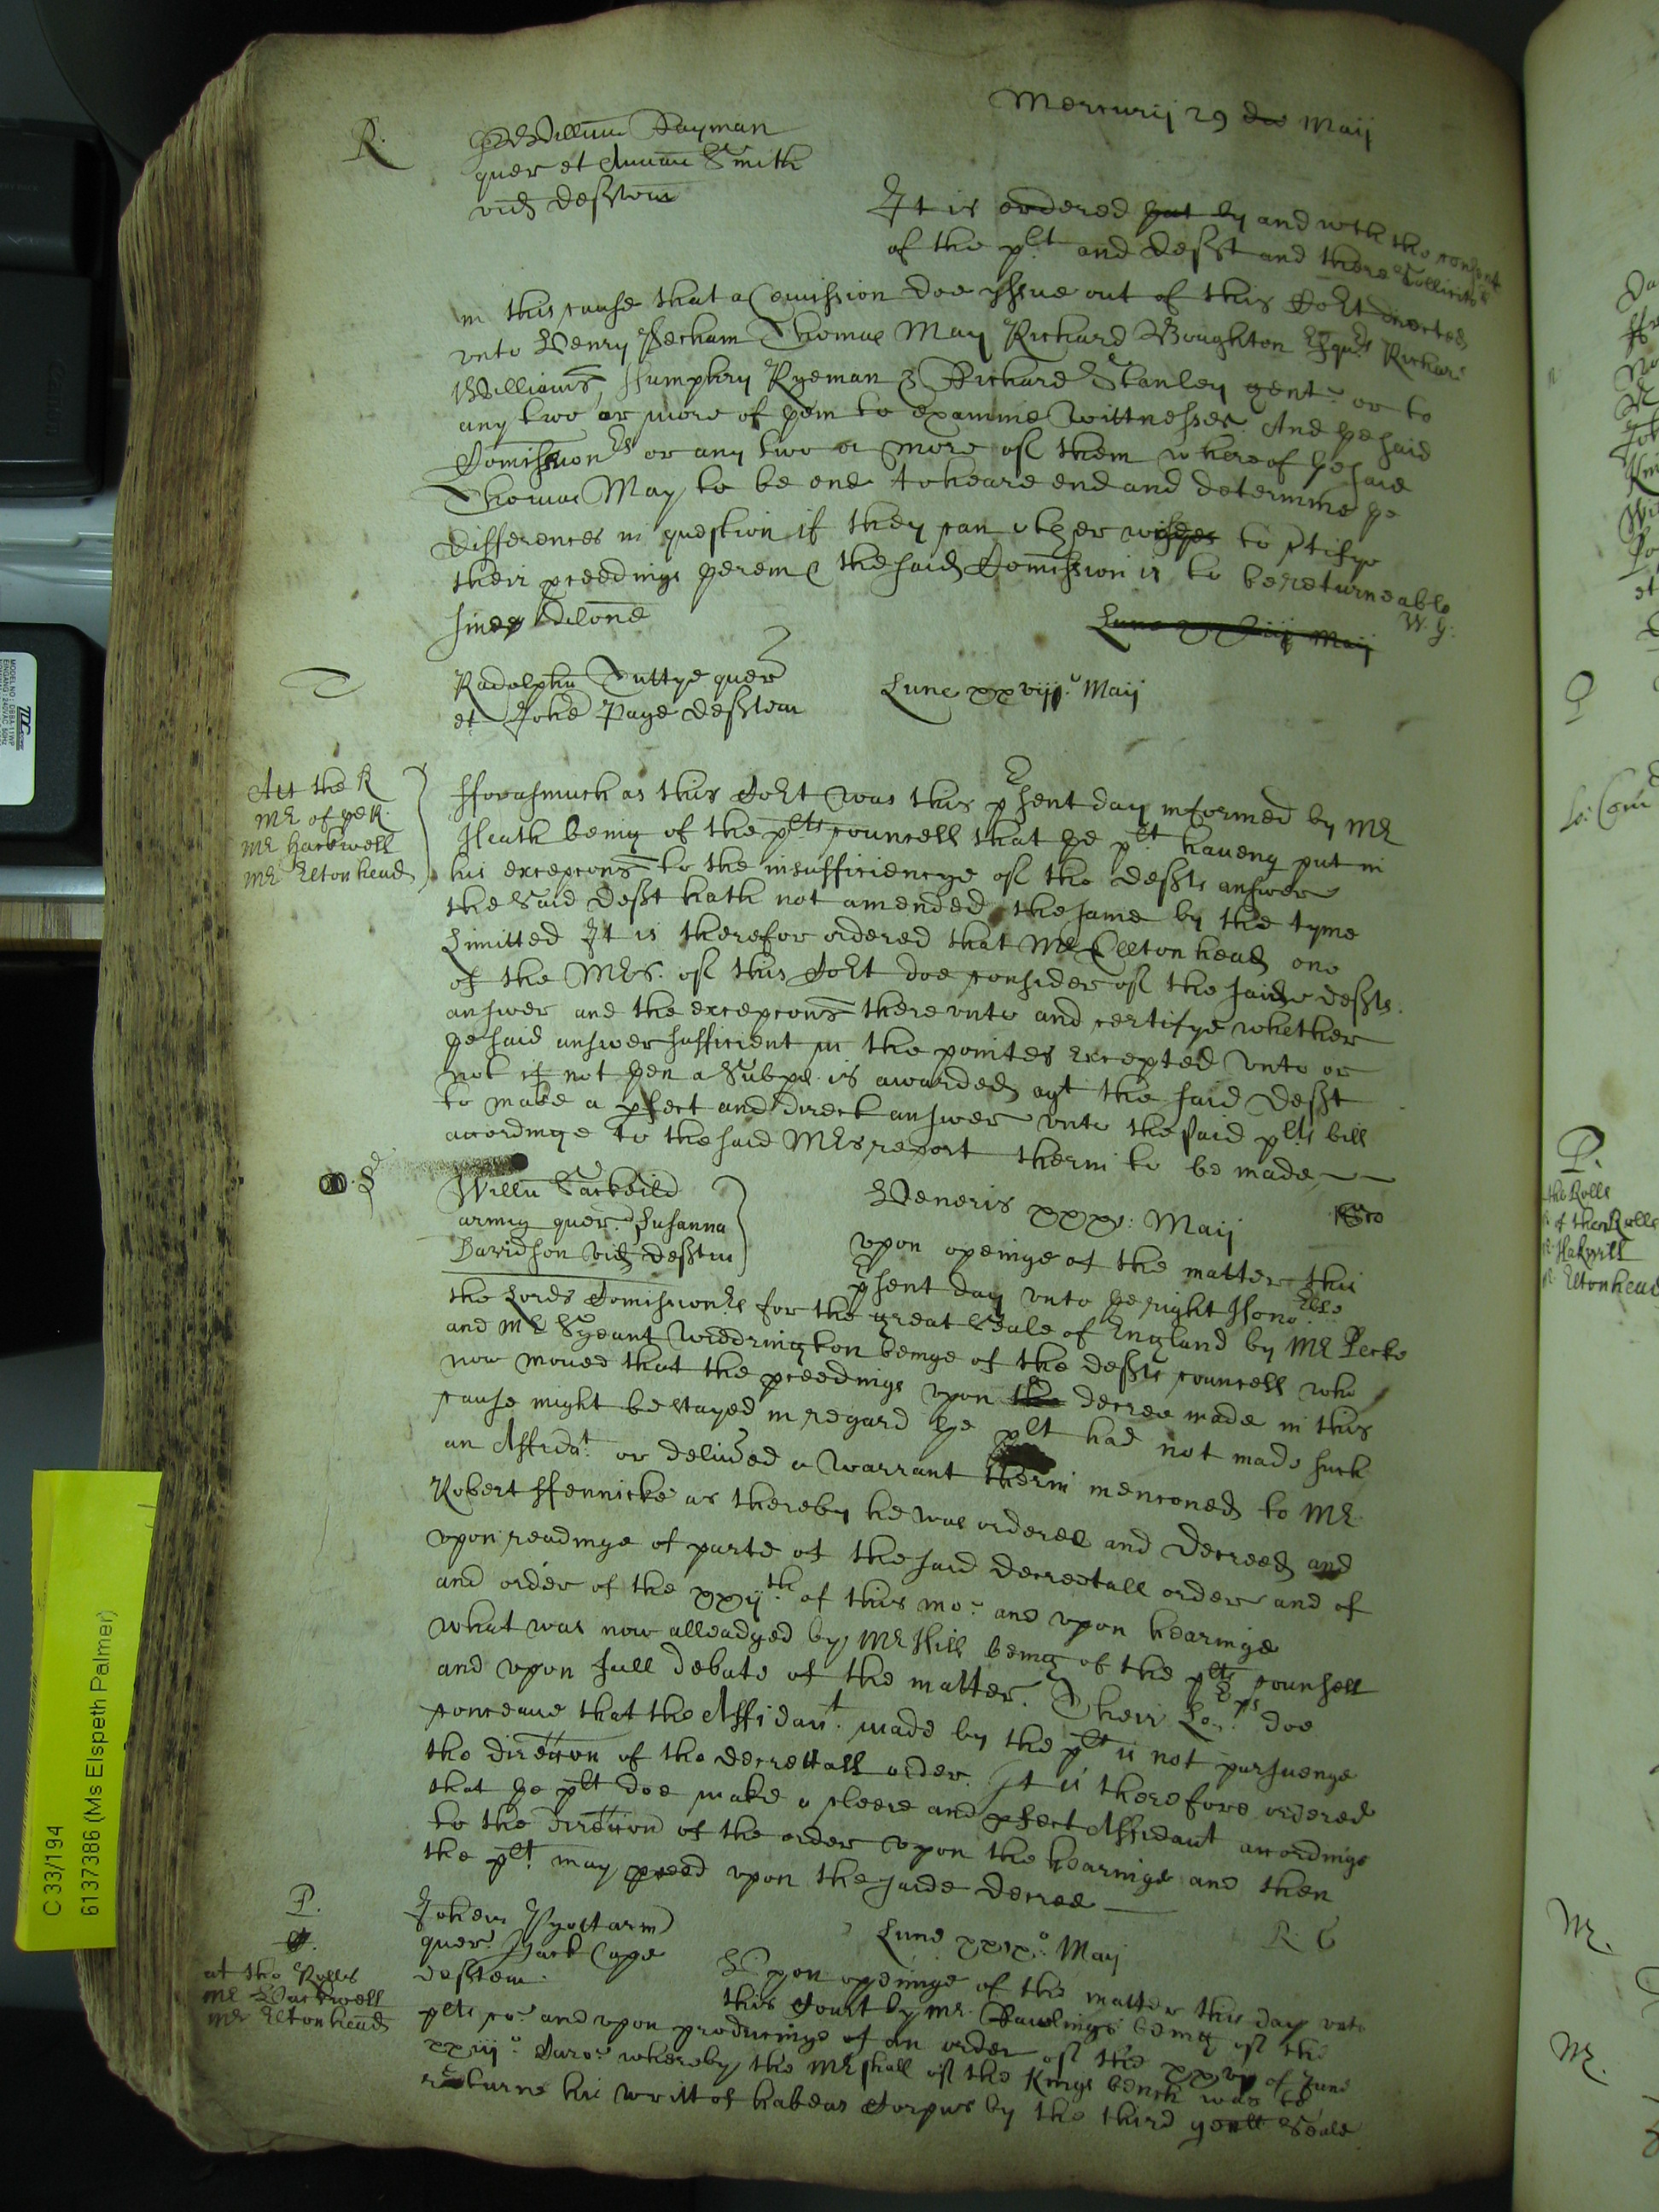 Mercurij 29 die Maij
R.
Willum Rayman
quer et Annam Smith
vid defftem
It is ordered by and with the consent
of the plt and defft and there Sollicitors
in this cause that a Comission doe yssue out of this Cort directed
vnto Henry Peckam Thomas May Richard Boughton Esqrs Richard
Williams, Humphry Ryeman & Richard Stanley gent or to
any two or more of yem to examine Wittnesses And ye said
Comissionrs or any two or more of them whereof ye said
Thomas May to be one to heare end and determine ye
differences in question if they can otherwise to certifye
their pceedings yerein & the said Comission is to be returneable
sine dilone
W. G:
Lune Maij
T
Radolphu Tuttye quer
et Johe Page defftem
Lune xxviij.o Maij
Att the R
Mr of ye R.
Mr Hackwell
Mr Eltonhead
fforasmuch as this Cort was this psent day informed by Mr
Heath being of the plts councell that ye plt haueng put in
his excepcons to the insufficiencye of the deffts answer
the said defft hath not amended the same by the tyme
Limitted It is therefor ordered that Mr Elltonhead one
of the Mrs. of this Cort doe consider of the saide deffts.
answer and the excepcons there vnto and certifye whether
ye said answer sufficient in the pointes Excepted vnto or
not if not yen a Subpe. is awarded agt the said defft
to make a pfect and direct answer vnto the said plts bill
accordinge to the said Mrs report therin to be made
S
Willu Sackeild
armig quer. Susanna
Davidson vid defftem
Veneris xxxj: Maij
vpon openinge of the matter this
psent day vnto ye right Honoble
the Lords Comissionrs for the great Seale of England by Mr Pecke
and Mr Sgeant Widdrington beinge of the deffts councell who
now moued that the pceedings vpon the decree made in this
cause might be stayed in regard ye plt had not made such
an Affidat. or deliued a warrant therin menconed to Mr
Robert ffennicke as thereby he was ordered and decreed and
vpon readinge of parte of the said decreetall order and of
and order of the xxijth. of this mo. and vpon hearinge
what was now alleadged by Mr Hill being of the plts counsell
and vpon full debate of the matter. Their Lops doe
conceaue that the Affidaut. made by the plt is not pursuenge
the direccon of the decretall order. It is therefore ordered
that ye plt doe make a cleere and pfect Affidaut accordinge
to the direccon of the order vpon the hearinge and then
the plt. may pceed vpon the saide decree
R. C
P.
at the Rolls
Mr Hackwell
Mr Eltonhead
Johem Pyott arm
quer. Jack Cope
defftem.
Lune Maij
Vpon openinge of the matter this day vnto
this Court by Mr. Rawlings being of the
plts co. and vpon producinge of an order of the xxvj of June
xxiij.o Caro. whereby the Mrshall of the Kings bench was to
returne his writt of habeas Corpus by the third genll Seale
P.
the Rolls
of the Rolls
Hakwill
Eltonhead
M.
M.
C 33/194
6137386 (Ms Elspeth Palmer)